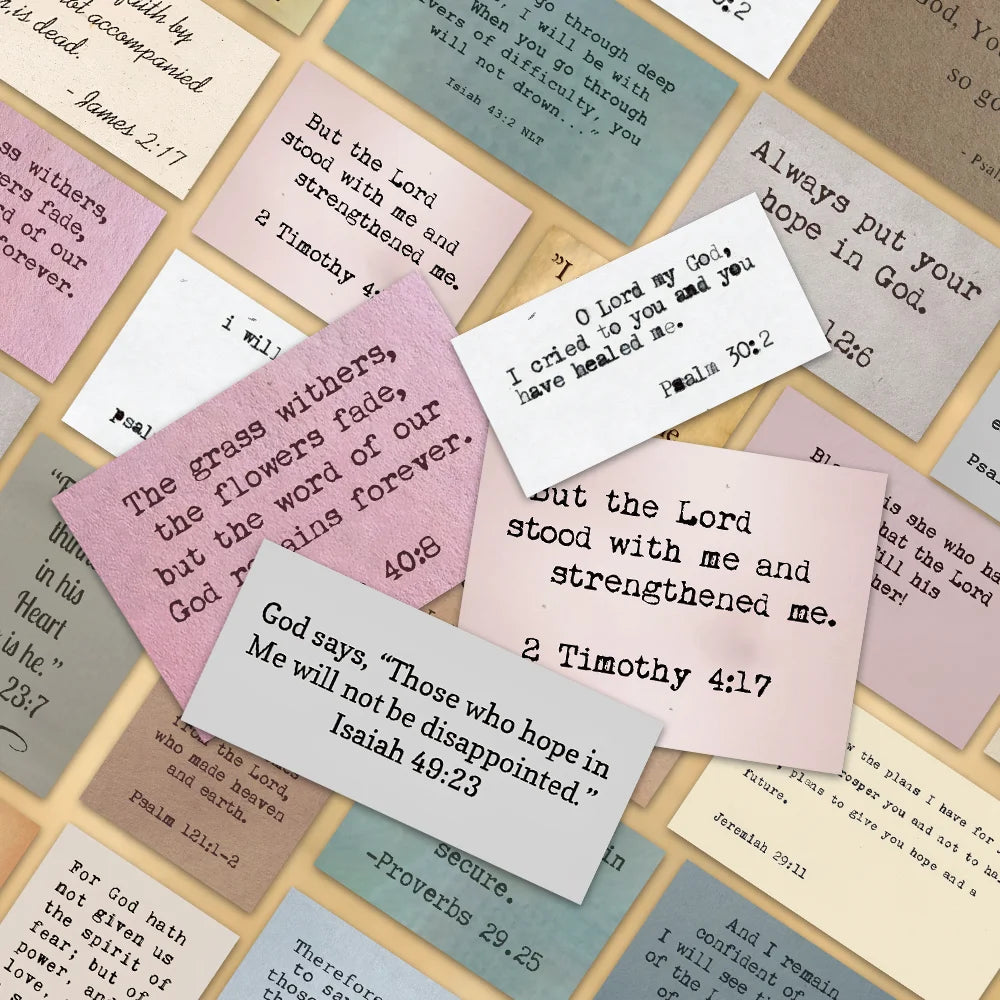 faith by
not accompanied
is dead.
- James 2:17
go through deep
I will be with
When you go through
of difficulty, you
will not
drown..."
Isiah 43:2 NLT
God,
so
withers,
fade,
of our
forever.
But the Lord
stood with me and
strengthened me.
2 Timothy
Always put your
hope in God.
12:6
i will
O Lord my God,
I cried to you and you
have healed me.
Psalm 30:2
The grass withers,
the flowers fade,
but the word of our
God forever.
40:8
But the Lord
stood with me and
strengthened me.
2 Timothy 4:17
is she who
that the Lord
his
her!
in his
Heart
is he."
23:7
God says, "Those who hope in
Me will not be disappointed."
Isaiah 49:23
from the Lord,
who made heaven
and earth.
Psalm 121:1-2
in
secure.
-Proverbs 29.25
the plans I have for
prosper you and not to
plans to give you hope and a
future.
Jeremiah 29:11
For God hath
not given us
the spirit of
fear; but of
power, and
love,
Therefore
to
those
And I remain
confident of
I will see
of the